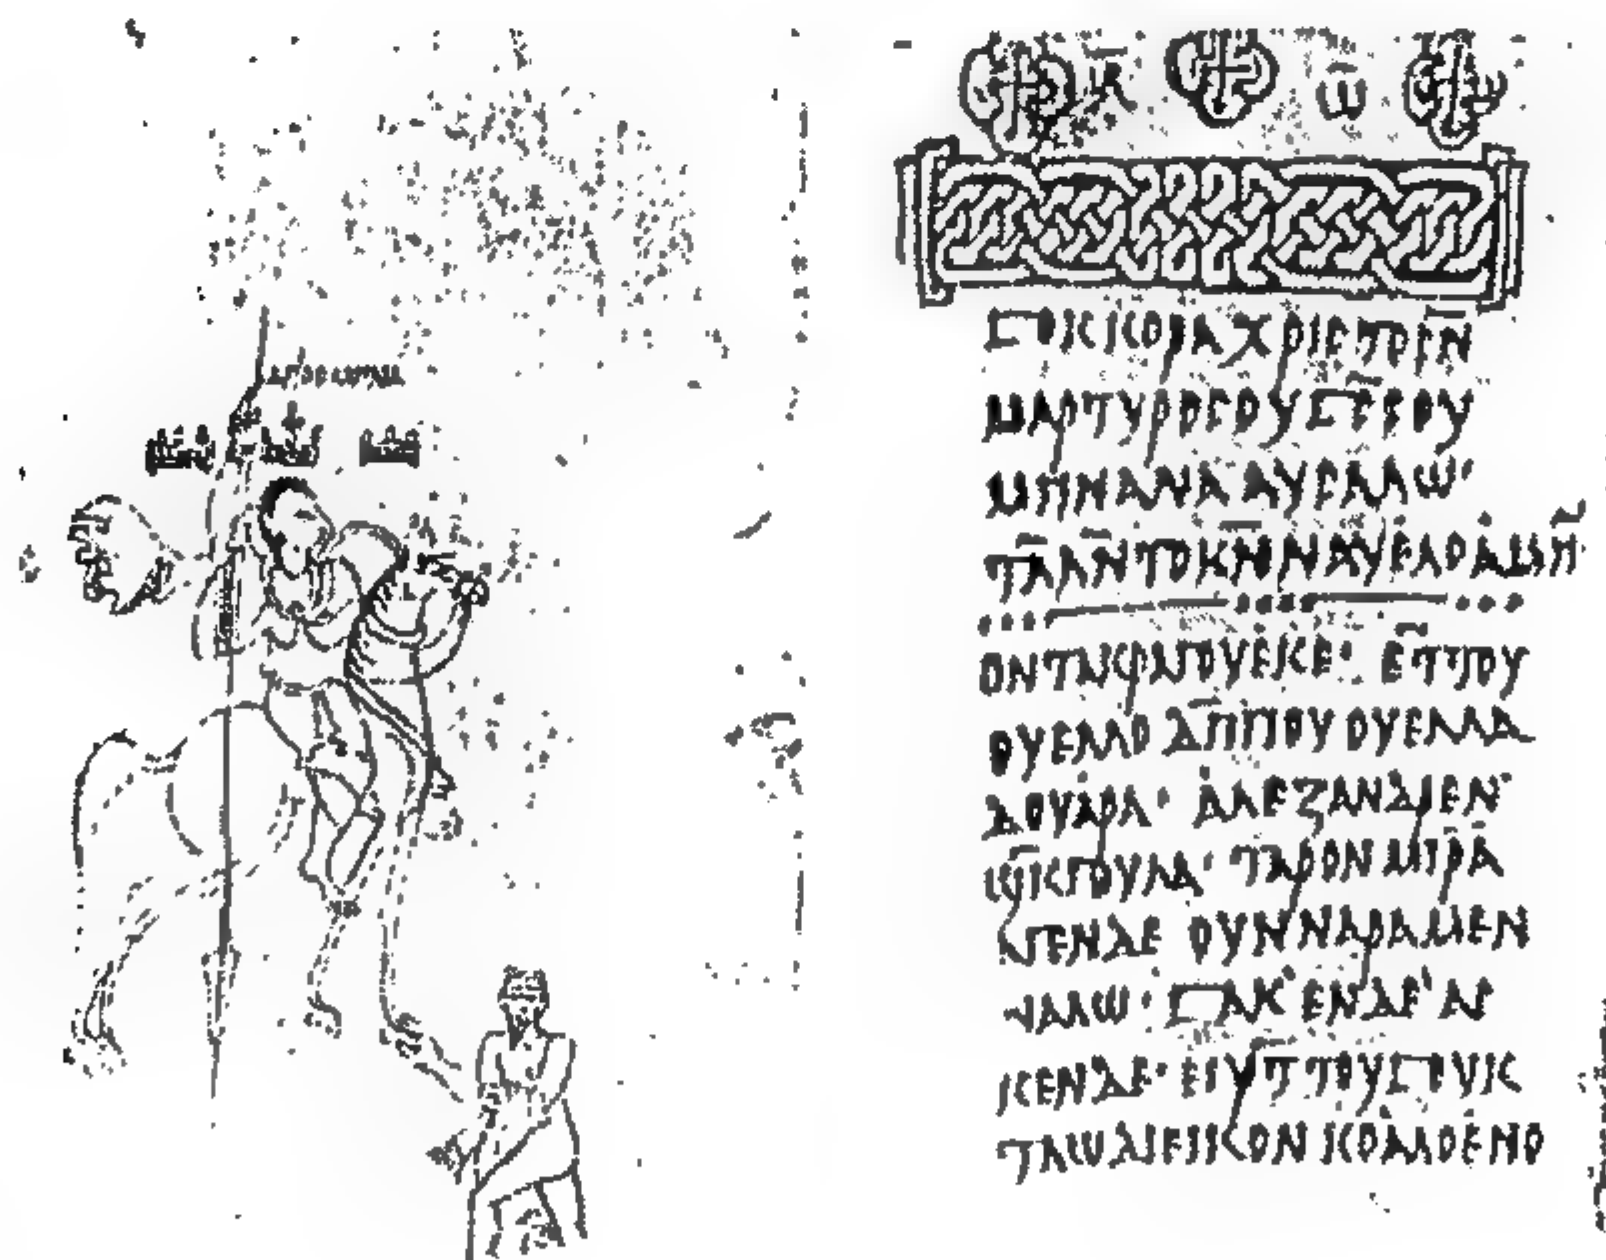 ⳟⲟⲕⲕⲟⲣⲁ ⲭⲣⲓⲥⲧⲟⲥⲛ̄
ⲙⲁⲣⲧⲩⲣⲟⲥⲟⲩ ⳟⲥ̄ⲥⲟⲩ
ⲙⲏⲛⲁⲛⲁ ⲁⲩⲥⲁⲗⲱ·
ⲧⲁ̄ⲗⲛ̄ ⲧⲟⲕⲛ̄ⲛⲁⲩⲉ̇ⲗⲟ ⲁ̇ⲙⲏ̄
ⲟⲛⲧⲁⲕⲣⲁⲅⲟⲩⲉ̇ⲕⲉ· ⲉⲧ̄ⲧⲟⲩ
ⲟⲩⲉⲗⲗⲟ ⲇⲡ̄ⲡⲟⲩ ⲟⲩⲉⲗⲗⲁ
ⲇⲟⲩⲁ̇ⲣⲁ· ⲁ̇ⲗⲉⲝⲁⲛⲇⲣⲉⲛ
ϣⲓ̄ⲕⲅⲟⲩⲗⲁ· ⲧⲁⲣⲟⲛ ⲙⲓⲣⲁ̄
ⲁⲅⲉⲛⲇⲉ ⲟⲩⲛⲛⲁⲣⲁ ⲙⲉⲛ
ⲛⲁⲗⲱ· ⳟⲁⲕ ⲉⲛⲇⲉ· ⲁⲥ
ⲕⲉⲛⲇⲉ· ⲉⲓⲩⲧ̄ⲧⲟⲩⳟⲟⲩⲕ
ⲧⲁⲗⲱ ⲇⲓⲉⲓⲕⲟⲛ ⲕⲟⲁ̇ⲗⲟ ⲉ̇ⲛⲟ